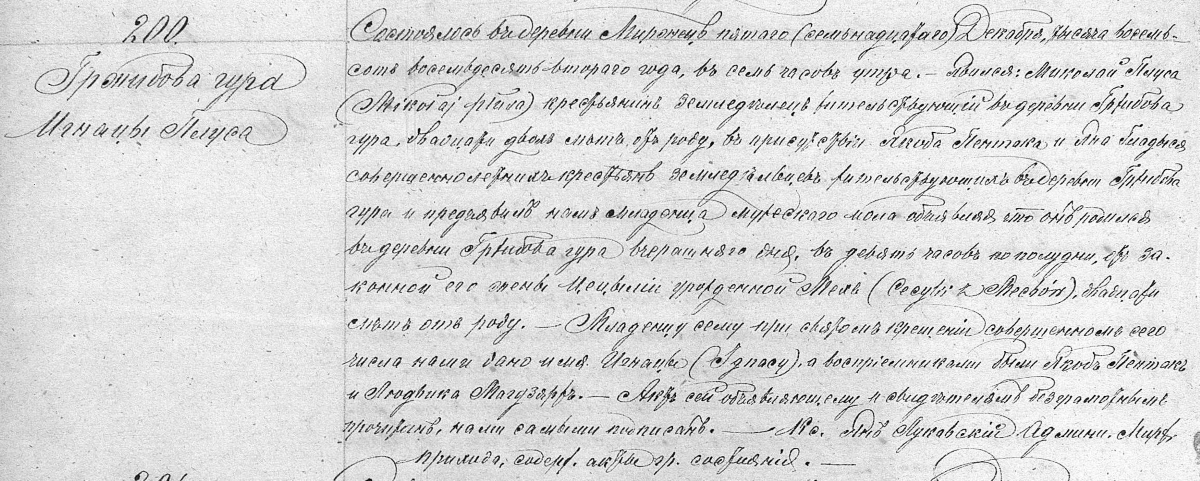 200.
Гржибова гура
Игнацы Плуса
Состоялось въ деревни Мирженец пятаго (семьнадцатаго) Декабря, тысяча восемь-
сотъ восемдесятъ втораго года, въ семь часовъ утра. — Явился: Миколай Плуса
(Mikołaj Płusa) крестьянинъ земледѣлецъ жительствующій въ деревни Гржибова
гура, двадцати двохъ лѣтъ отъ роду, въ присутствіи Якоба Пентака и Яна Гладыся
совершеннолетнихъ крестьянъ земледѣльцевъ жительствующихъ въ деревни Гржибова
гура и предъявилъ намъ младенца мужескаго пола объявляя что онъ родился
въ деревни Гржибова гура вчерашняго дня, въ девять часовъ по полудни, отъ за-
конной его жены Цецыліи урожденной Мехъ (Cecylii z), двадцати
лѣтъ отъ роду. — Младенцу сему при святомъ крещеніи совершенномъ сего
числа нами дано имя Игнацы (Ignacy), а воспріемниками были Якобъ Пентакъ
и Людвика. — Актъ сей объявляющему и свидѣтелямъ безграмотнымъ
прочитанъ, нами самыми подписанъ. — Кс. Янъ Луковскій Админи. Мирж.
прихода, содерж. акты гр. состоянія. —
201